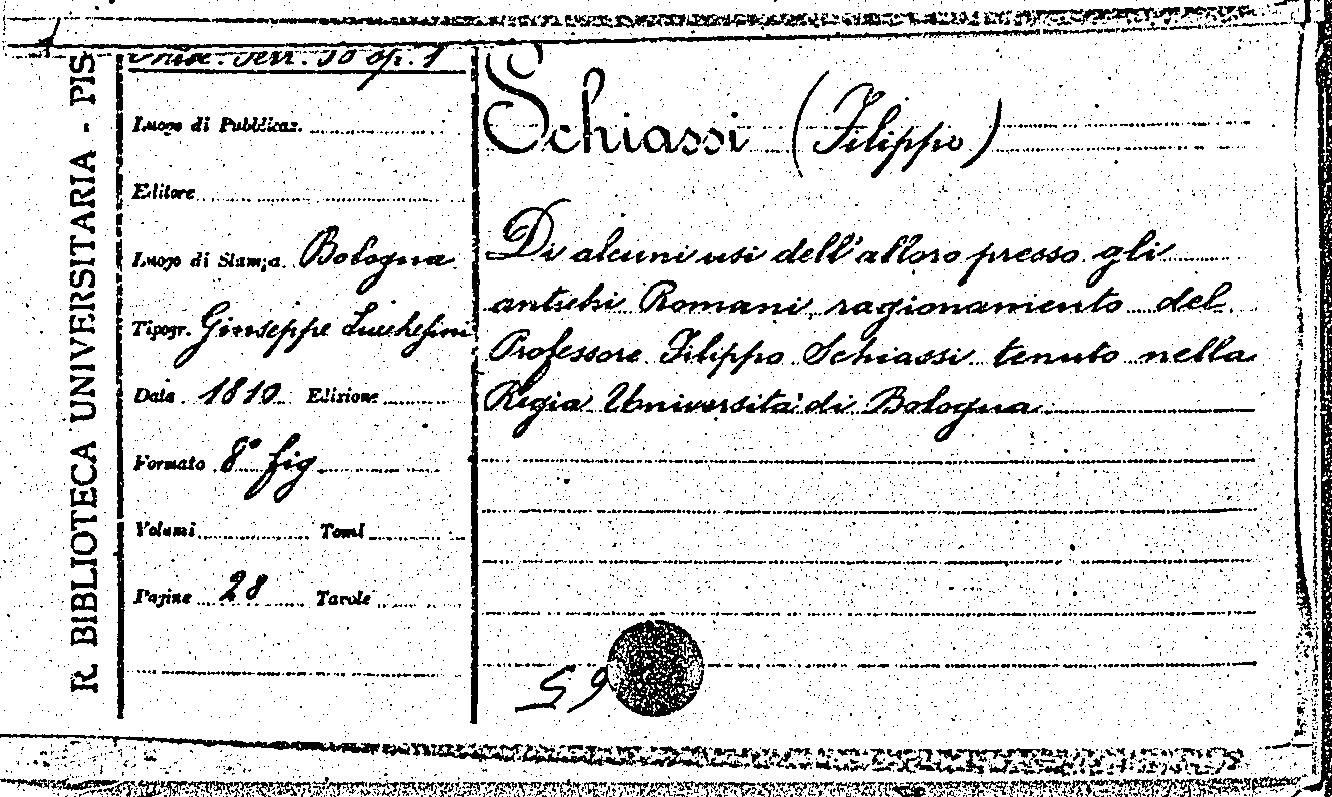 R. BIBLIOTECA UNIVERSITARIA - PIS
Misc. serr. 10 op. 1
Luogo di Pubblicaz.
Editore
Luogo di Stampa Bologna
Tipogr. Giuseppe Lucchesini
Data 1810 Edizione
Formato 8° fig
Volumi Tomi
Pagine 28 Tavole
Schiassi (Filippo)
Di alcuni usi dell'alloro presso gli
antichi Romani, ragionamento del
Professore Filippo Schiassi tenuto nella
Regia Università di Bologna